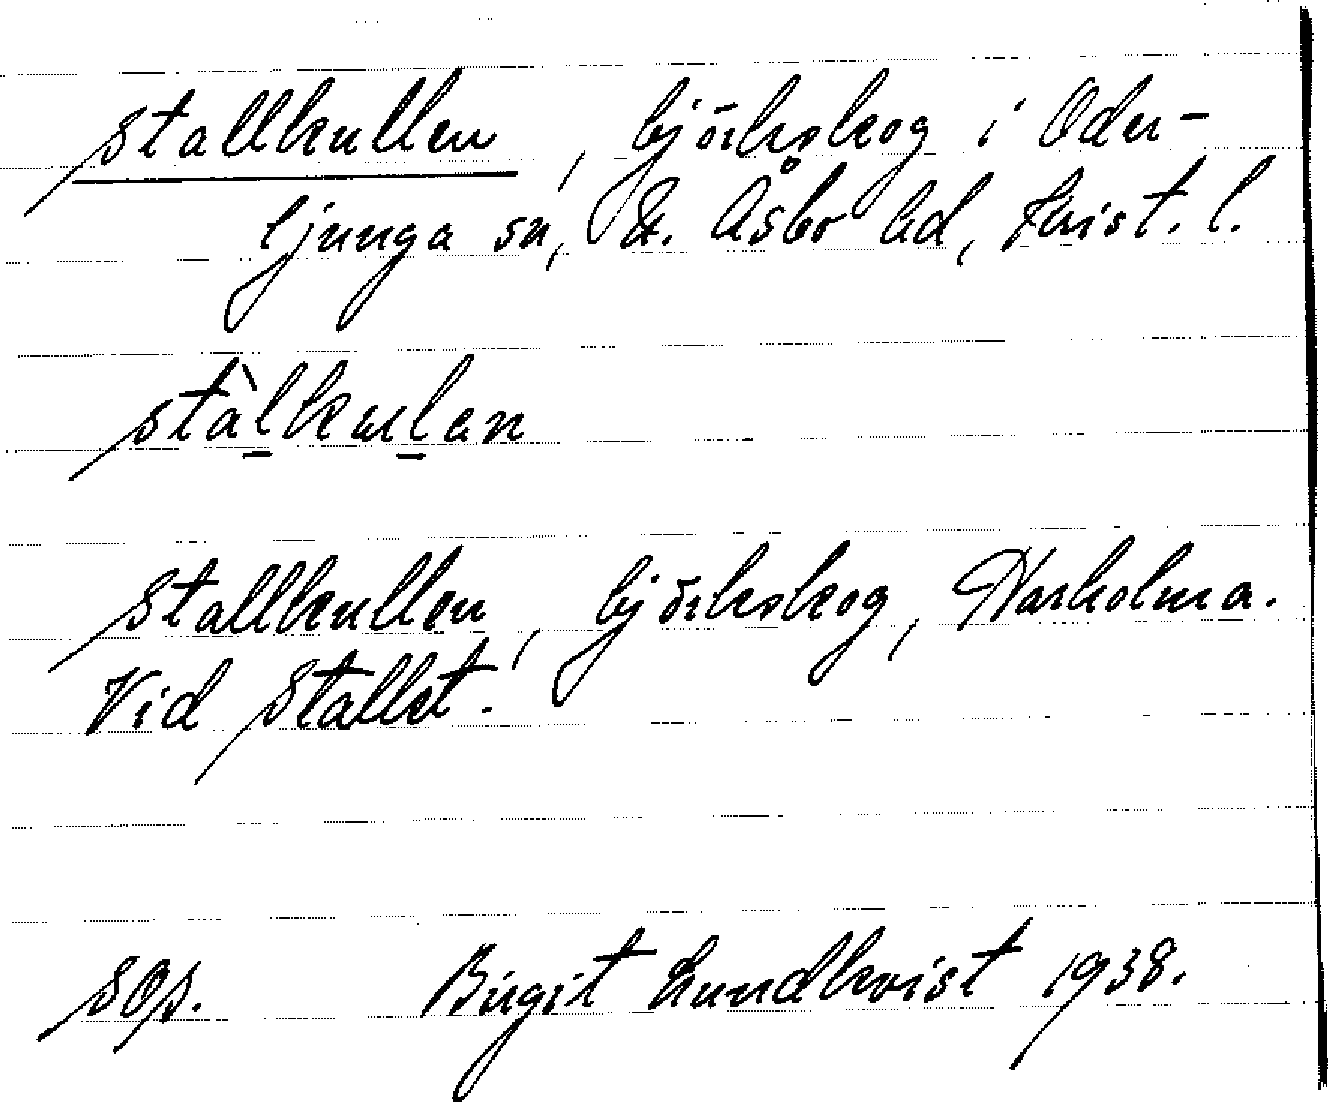 Stallkullen, björkskog i Oder-
ljunga sn, N. Åsbo hd, Krist. l.
stàlkulan
Stallkullen, björkskog, Harholma.
Vid Stallet.
SOp. Birgit Lundkvist 1938.